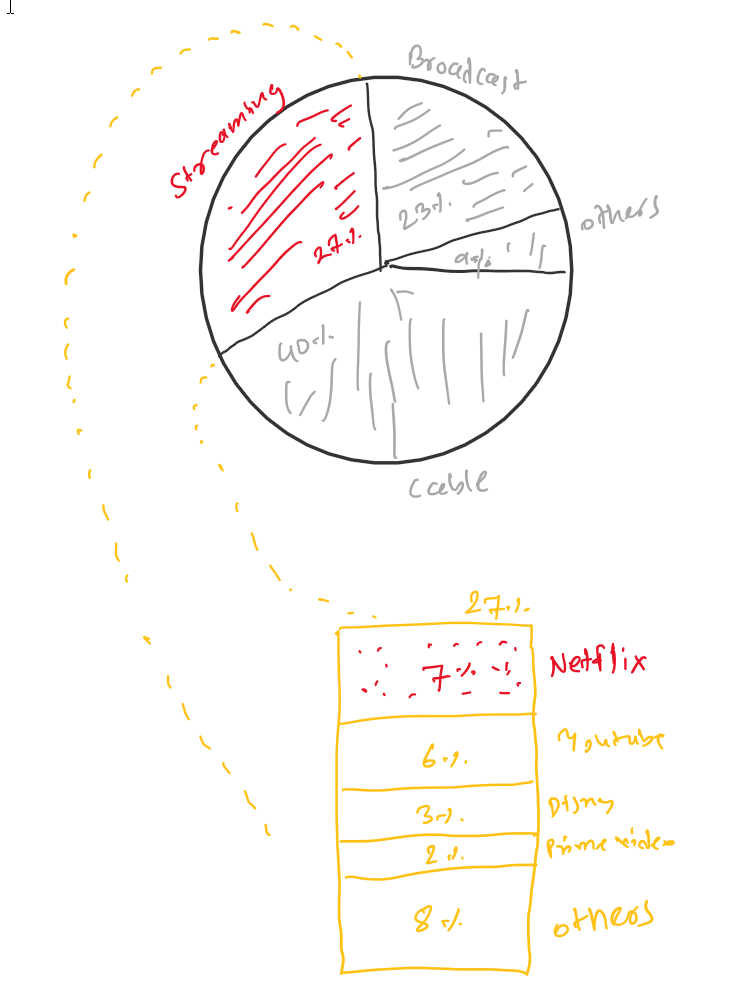 Broadcast
Streaming
others
23%
27%
9%
40%
Cable
27%
7%
Netflix
Youtube
6%
3%
Disny
2%
Prime video
8%
others